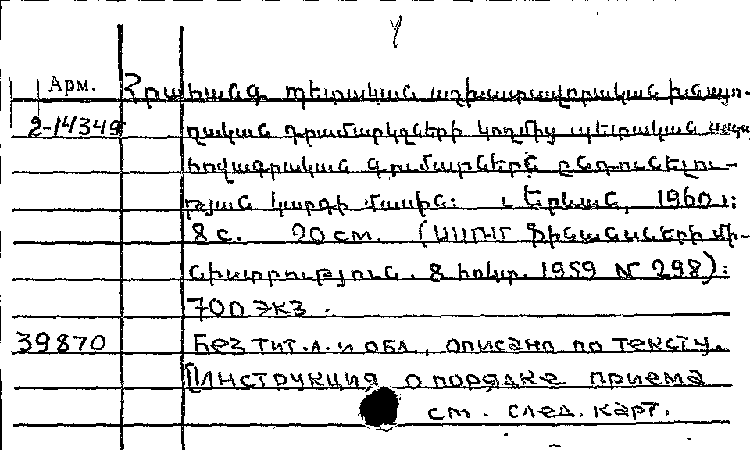 Арм.
Հրահանգ պետական աշխատավորական խնայո-
2-14349
ղական դրամարկղների կողմից պետական ապա
հովագրական գումարների ընդունելու-
թյան կարգի մասին: Երևան, 1960 թ:
8 с. 20 см. (ՍՍՀՄ Ֆինանսների մի-
նիստրություն. 8 հոկտ. 1959 N 298):
700 экз.
39870
Без тит.л. и обл., описано по тексту.
[Инструкция о порядке приема
см. след. карт.